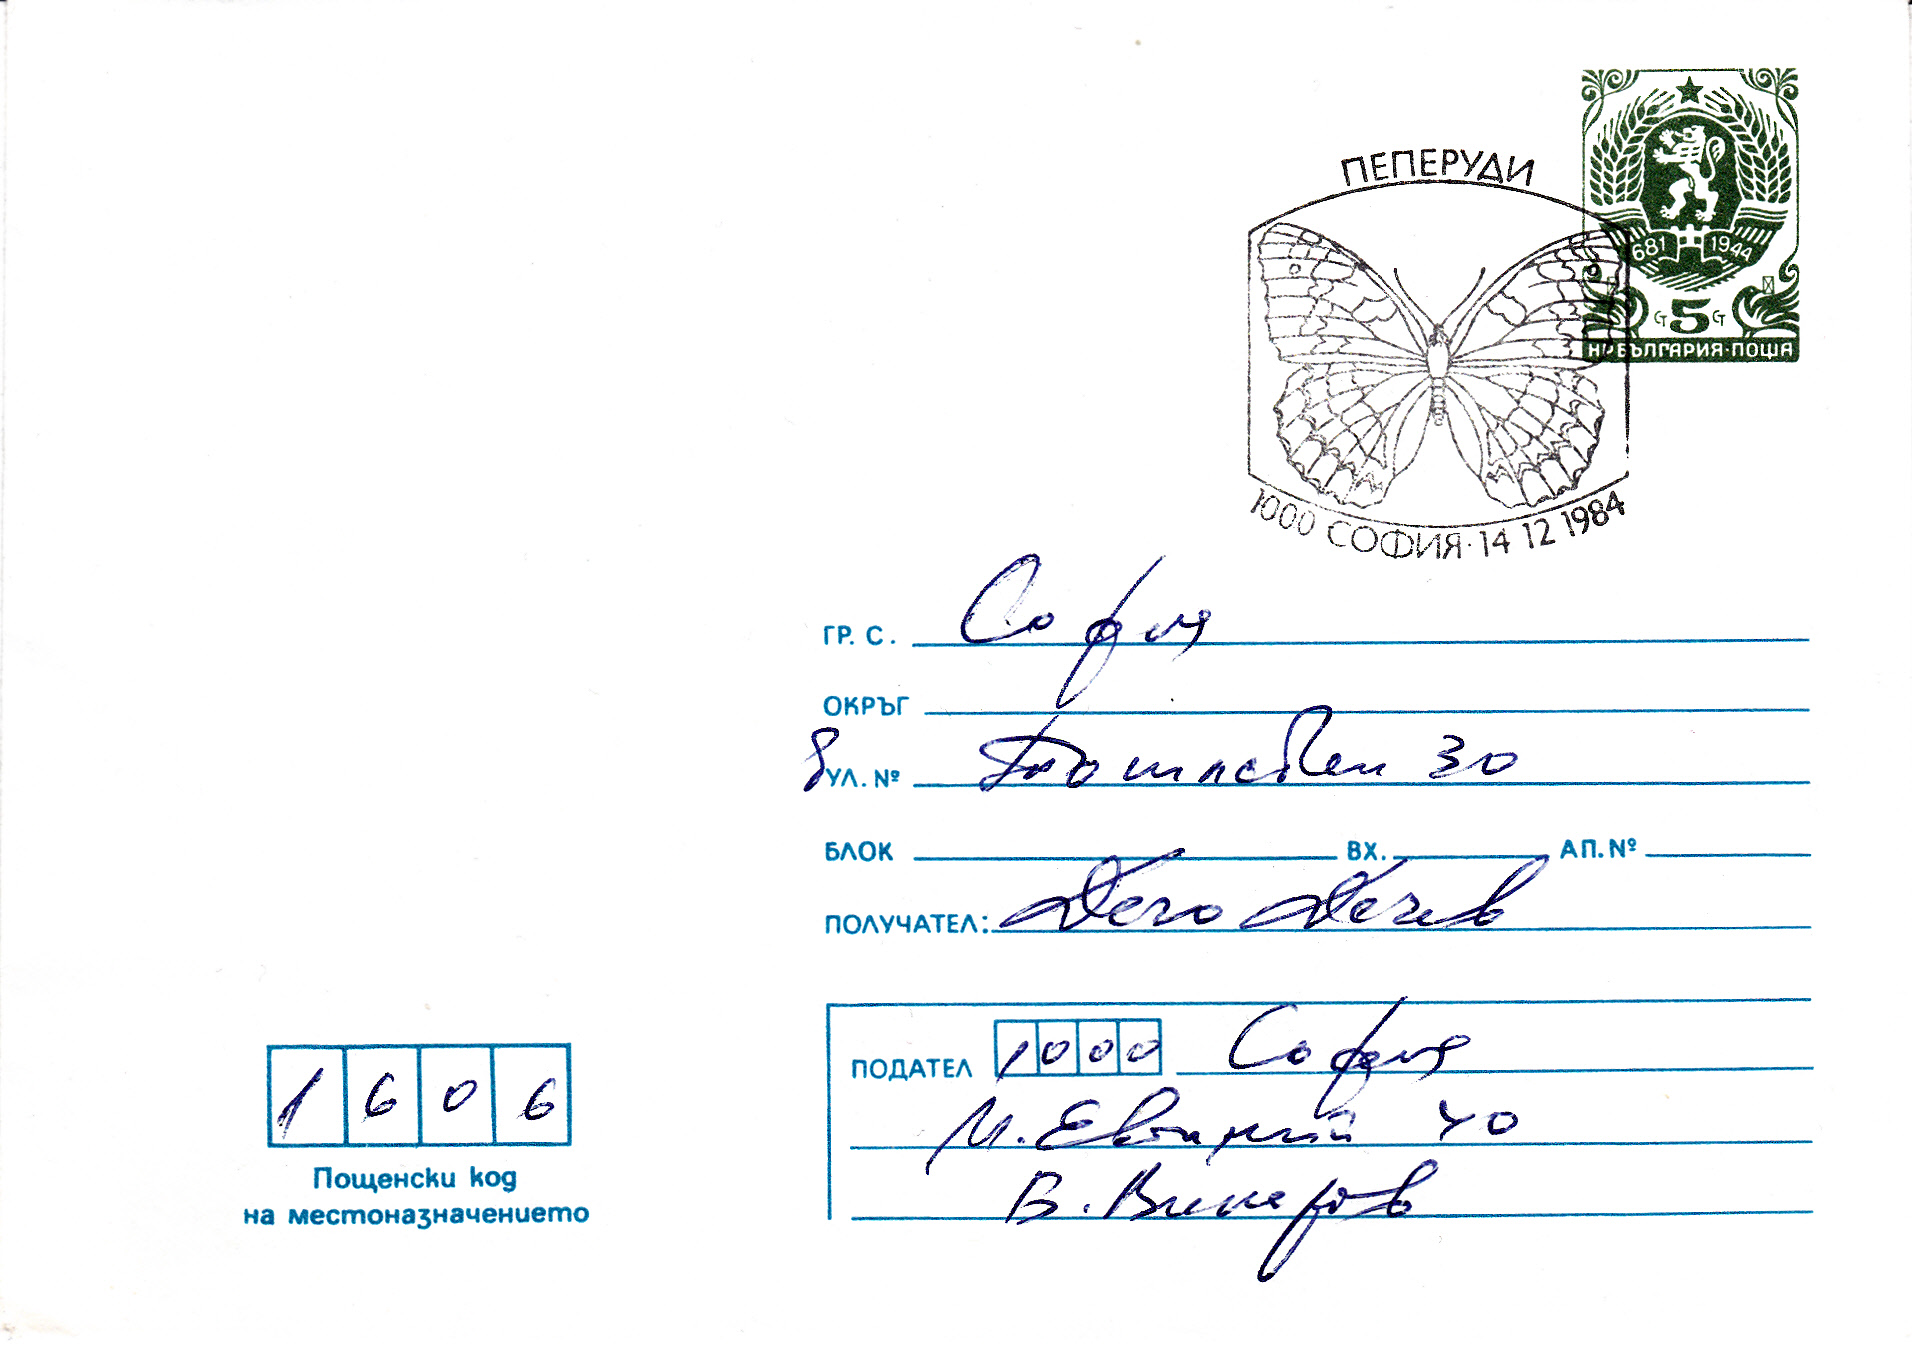 ПЕПЕРУДИ
681 1944
СТ 5 СТ
НР БЪЛГАРИЯ·ПОЩА
1000 СОФИЯ·14 12 1984
ГР. С. София
ОКРЪГ
УЛ. № 30
БЛОК ВХ. АП. №
ПОЛУЧАТЕЛ: Дечо Дечев
1606
Пощенски код
на местоназначението
ПОДАТЕЛ 1000 София
40
В. Винаров